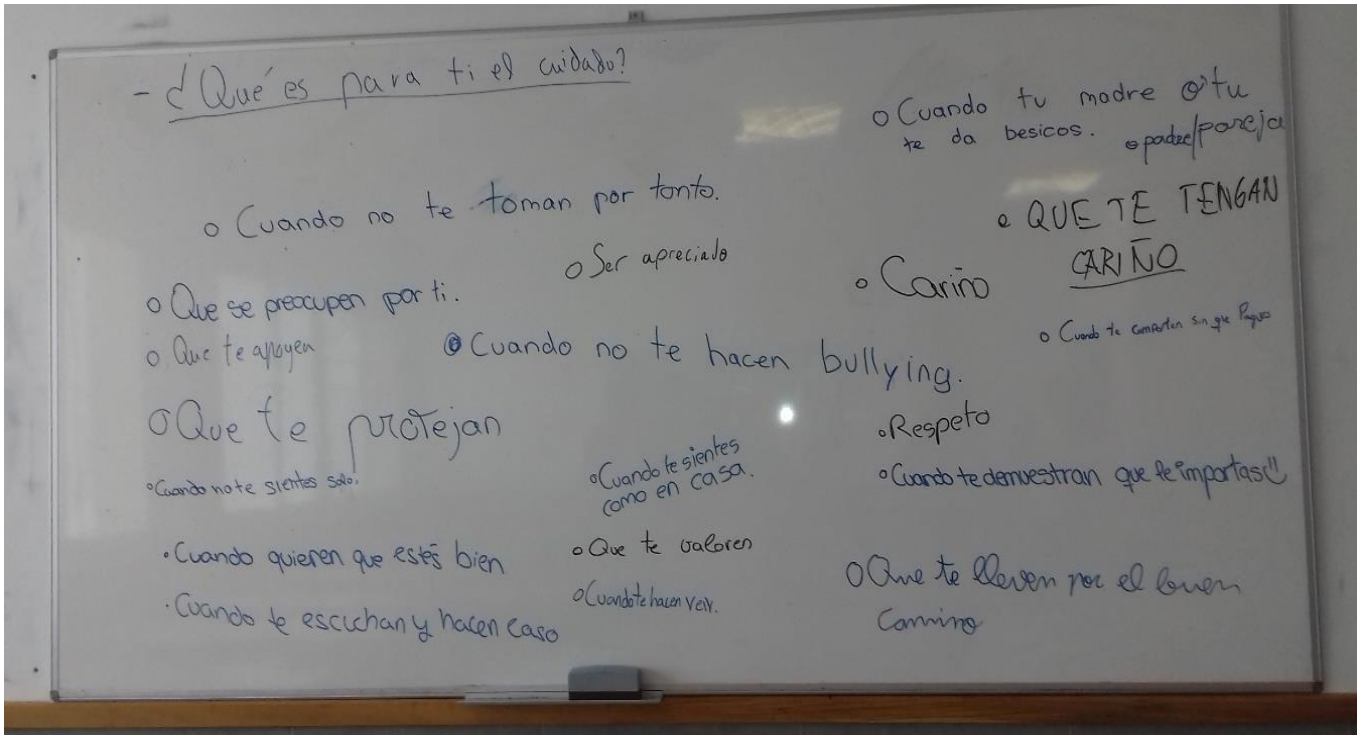 - ¿Qué es para ti el cuidado?
o Cuando tu madre o tu
te da besicos. o padre/pareja
o Cuando no te toman por tonto.
o QUE TE TENGAN
CARIÑO
o Ser apreciado
o Cariño
o Que se preocupen por ti.
o Cuando te comparten sin que Pagues
o Que te apoyen
o Cuando no te hacen bullying.
o Que te protejan
o Respeto
o Cuando no te sientes solo.
o Cuando te sientes
como en casa.
o Cuando te demuestran que le importas
· Cuando quieren que estés bien
o Que te valoren
o Que te lleven por el buen
Camino
o Cuando te hacen reir.
· Cuando te escuchan y hacen caso